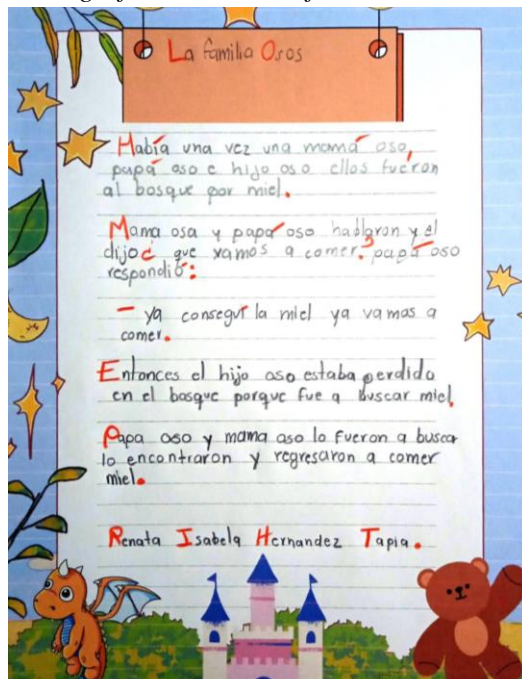 La familia Osos
Había una vez una mamá oso,
papá oso e hijo oso ellos fuéron
al bosque por miel.
Mama osa y papá oso hablaron y el
dijo¿ que vamos a comer? papá oso
respondió:
– ya conseguí la miel ya vamos a
comer.
Entonces el hijo oso estaba perdido
en el bosque porque fue a buscar miel.
Papa oso y mama oso lo fueron a buscar
lo encontraron y regresaron a comer
miel.
Renata Isabela Hernandez Tapia.